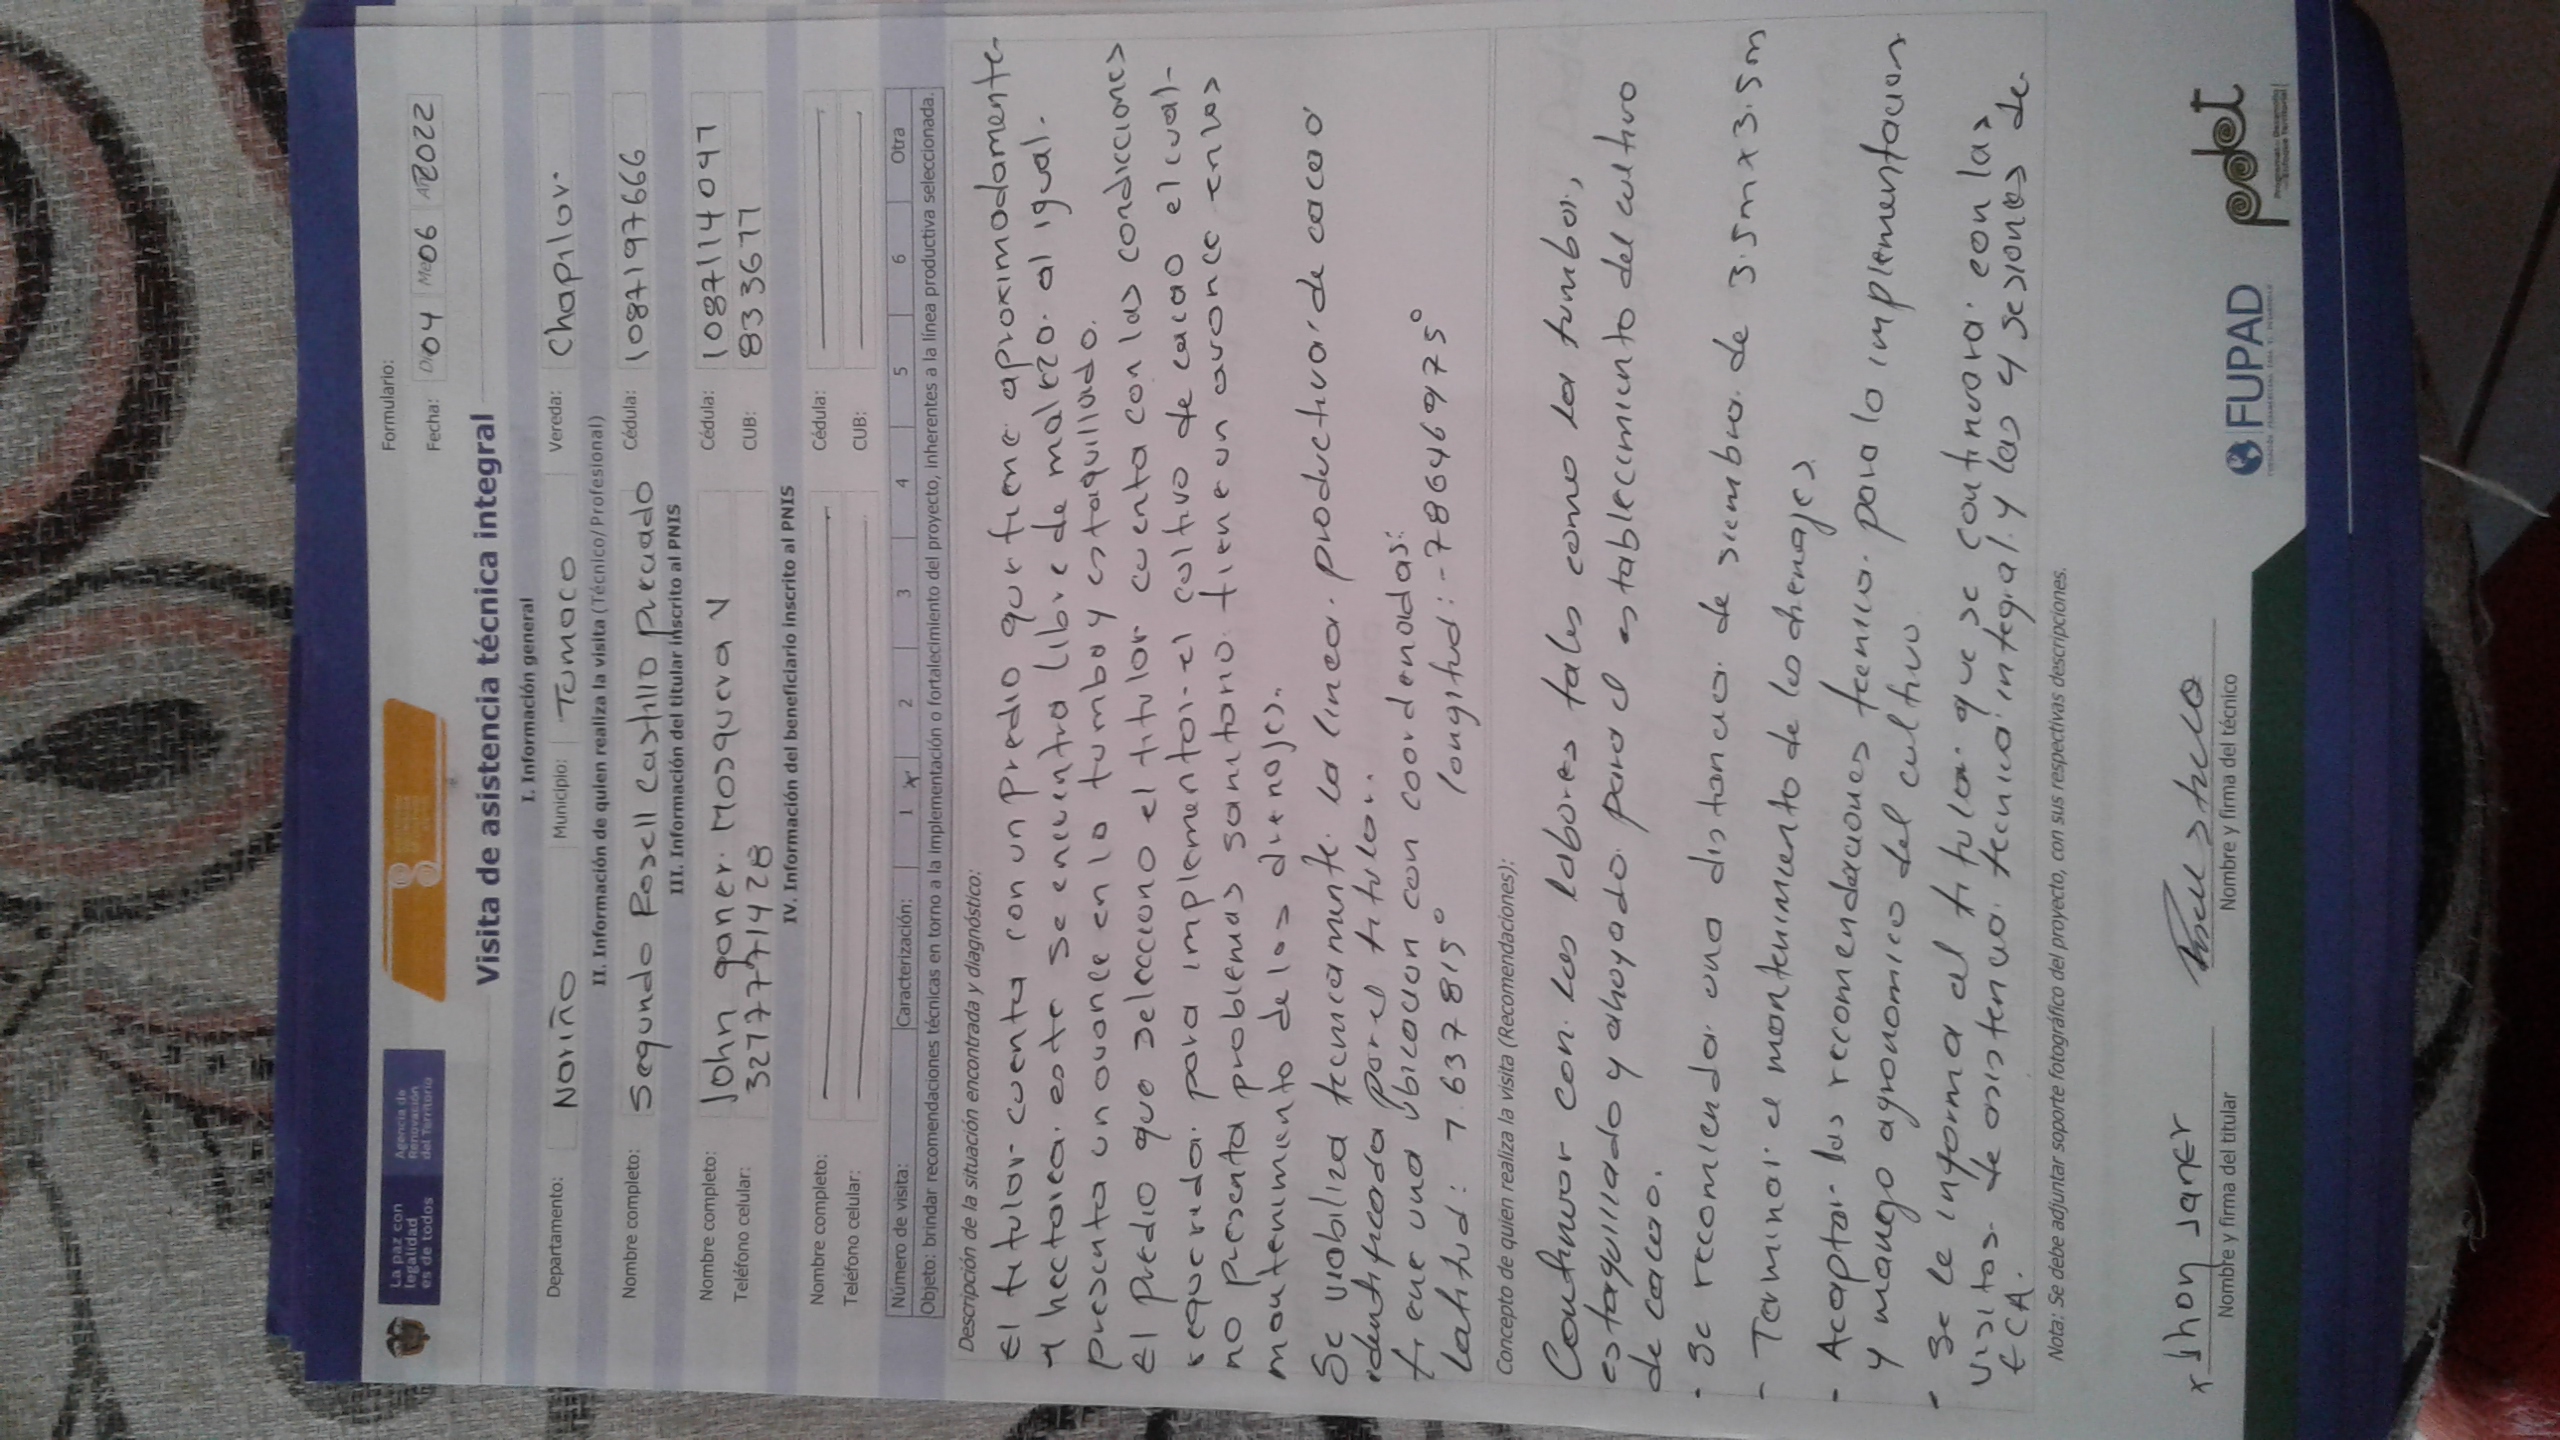 La paz con legalidad es de todos
Agencia de Renovación del Territorio
Formulario:
Fecha: 04 06 2022
Visita de asistencia técnica integral
I. Información general
Departamento: Nariño Municipio: Tumaco Vereda: Chapilar
II. Información de quien realiza la visita (Técnico/Profesional)
Nombre completo: Segundo Posell Castillo Preciado Cédula: 1087197666
III. Información del titular inscrito al PNIS
Nombre completo: John ganer Mosquera V Cédula: 1087114097
Teléfono celular: 3217771428 CUB: 833677
IV. Información del beneficiario inscrito al PNIS
Nombre completo: Cédula:
Teléfono celular: CUB:
Número de visita: Caracterización: 1 x 2 3 4 5 6 Otra
Objeto: brindar recomendaciones técnicas en torno a la implementación o fortalecimiento del proyecto, inherentes a la línea productiva seleccionada.
Descripción de la situación encontrada y diagnóstico:
El titular cuenta con un predio que tiene aproximadamente
1 hectarea. este se encuentra libre de maleza al igual
presenta un avance en la tumba y estaquillado.
El predio que selecciono el titular cuenta con las condiciones
requerida para implementar el cultivo de cacao el cual
no presenta problemas sanitario. tiene un avance en los
mantenimiento de los drenajes.
Se viabiliza tecnicamente la linea productiva de cacao
identificada por el titular.
tiene una ubicacion con coordenadas:
Latitud: 1.637815° longitud: -78.6469975°
Concepto de quien realiza la visita (Recomendaciones):
Continuar con las labores tales como la tumba,
estaquillado y ahoyado para el establecimiento del cultivo
de cacao.
- Se recomienda una distancia de siembra de 3.5m x 3.5m
- Terminar el mantenimiento de lo drenajes
- Aceptar las recomendaciones tecnica para la implementacion
y manejo agronomico del cultivo.
- Se le informa al titular que se continuara con las
visitas de asistencia tecnica integral y las 4 sesiones de
ECA.
Nota: Se debe adjuntar soporte fotográfico del proyecto, con sus respectivas descripciones.
x Jhon Janer
Nombre y firma del titular
Nombre y firma del técnico
FUPAD
pdet